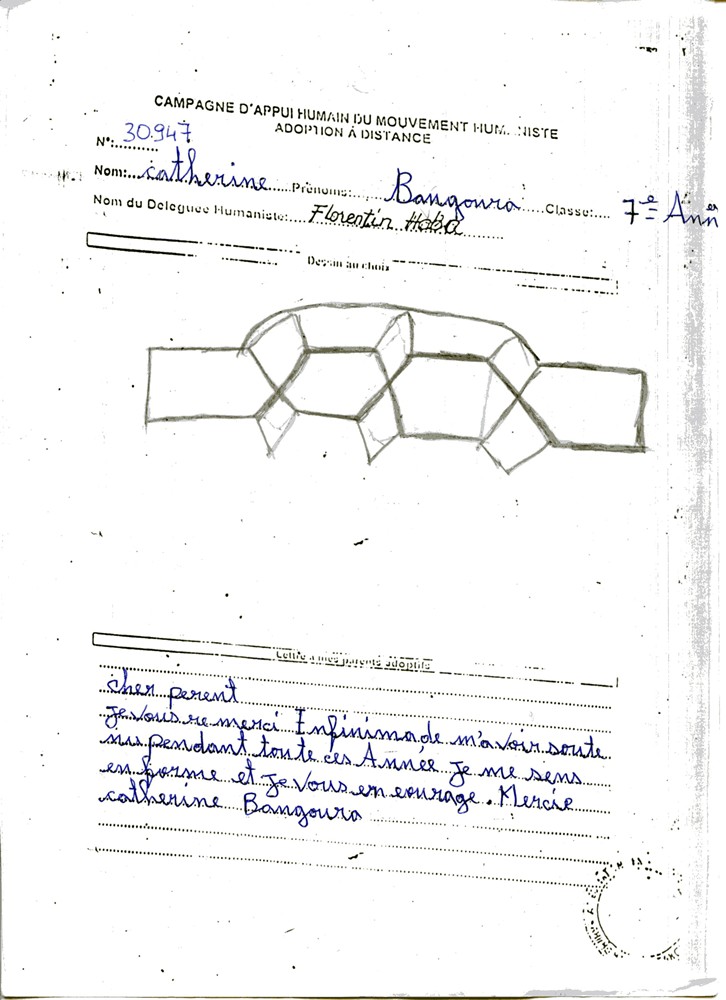 CAMPAGNE D'APPUI HUMAIN DU MOUVEMENT HUM...NISTE
ADOPTION À DISTANCE
N°:.......... 30.947
Nom:...catherine....Prénoms:.....Bangoura....Classe:.... 7e Ann
Nom du Deleguee Humaniste:....Florentin Haba
Dessin au choix
Lettre a mes parents adoptifs
cher perent
Je vous re merci Enfinimade m'avoir soute
nu pendant toute ces Année Je me sens
en forme et Je Vous en courage. Mercie
catherine Bangoura